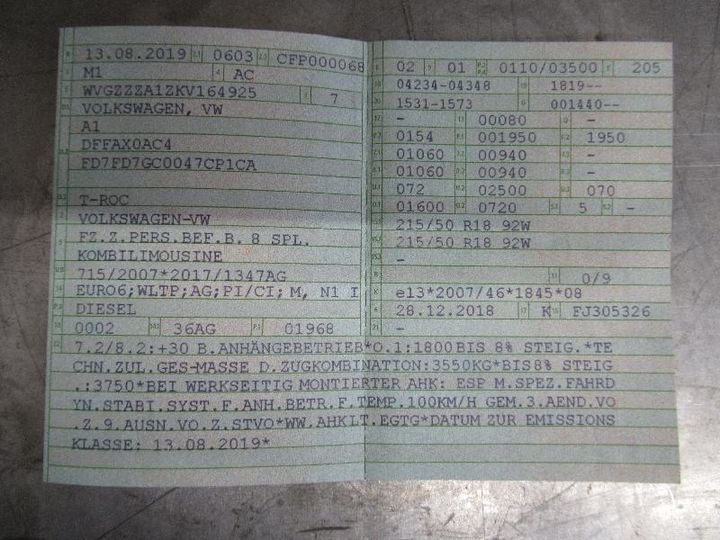 13.08.2019 0603 CFP000068
M1 AC
WVGZZZA1ZKV164925 7
VOLKSWAGEN, VW
A1
DFFAX0AC4
FD7FD7GC0047CP1CA
T-ROC
VOLKSWAGEN-VW
FZ.Z.PERS.BEF.B. 8 SPL.
KOMBILIMOUSINE
715/2007*2017/1347AG
EURO6;WLTP;AG;PI/CI; M, N1 I
DIESEL
0002 36AG 01968
02 01 0110/03500 205
04234-04348 1819--
1531-1573 001440--
- 00080 -
0154 001950 1950
01060 00940 -
01060 00940 -
072 02500 070
01600 0720 5 -
215/50 R18 92W
215/50 R18 92W
-
0/9
e13*2007/46*1845*08
28.12.2018 K FJ305326
-
7.2/8.2:+30 B.ANHÄNGEBETRIEB*O.1:1800 BIS 8% STEIG.*TE
CHN.ZUL.GES-MASSE D.ZUGKOMBINATION:3550KG*BIS 8% STEIG
.:3750*BEI WERKSEITIG MONTIERTER AHK: ESP M.SPEZ.FAHRD
YN.STABI.SYST.F.ANH.BETR.F.TEMP.100KM/H GEM.3.AEND.VO
.Z.9.AUSN.VO.Z.STVO*WW.AHK LT.EGTG*DATUM ZUR EMISSIONS
KLASSE: 13.08.2019*